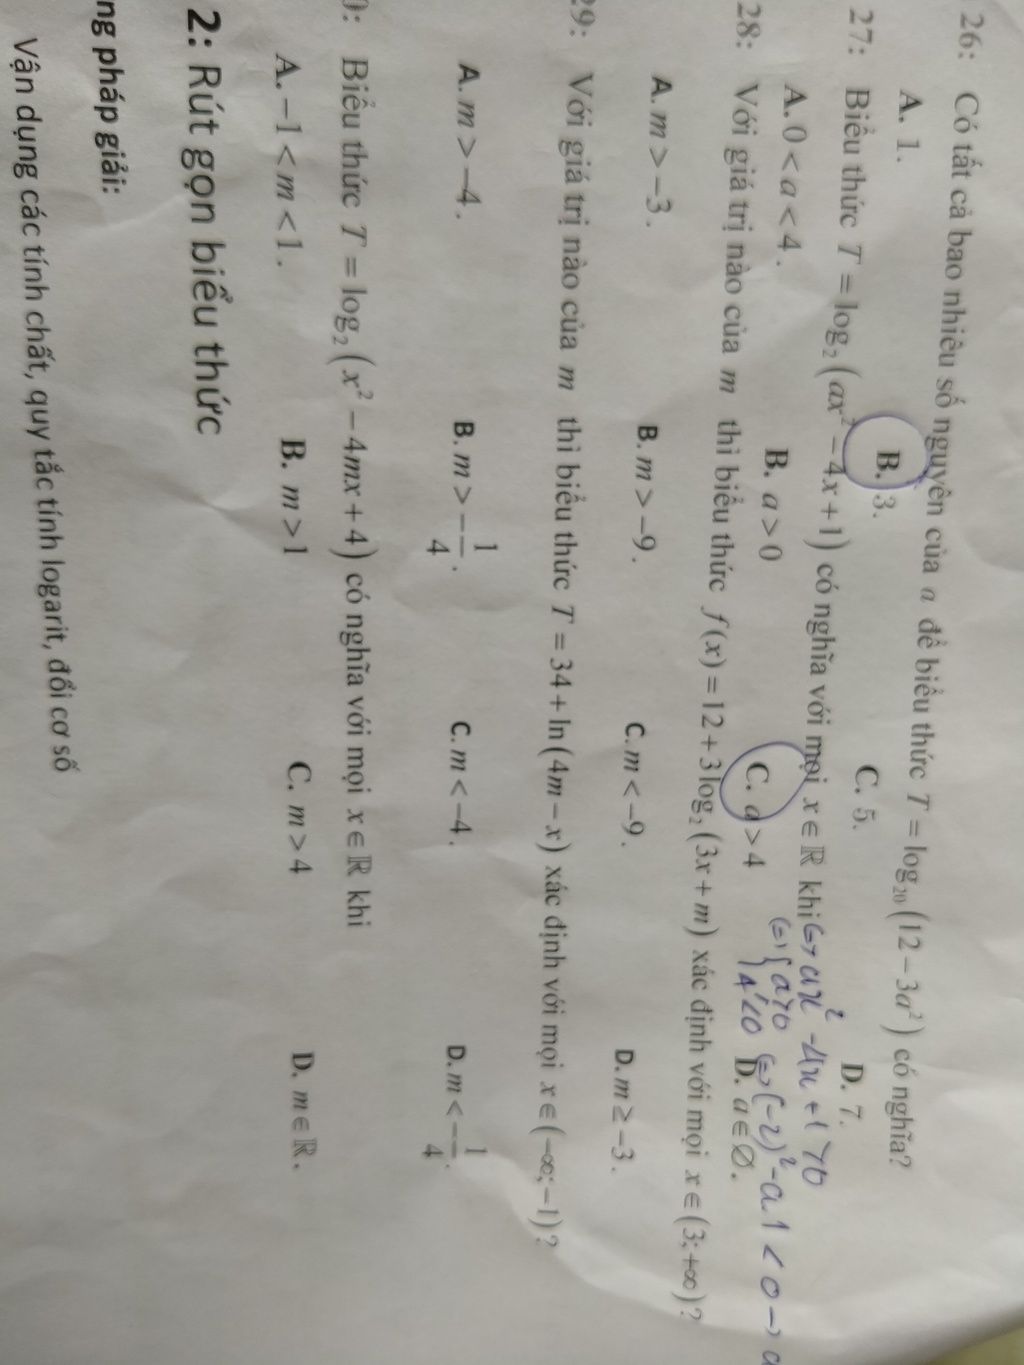 26: Có tất cả bao nhiêu số nguyên của a để biểu thức T = log₂₀(12 − 3a²) có nghĩa?
A. 1. B. 3. C. 5. D. 7.
27: Biểu thức T = log₂(ax² − 4x + 1) có nghĩa với mọi x ∈ ℝ khi ⇔ ax² − 4x + 1 > 0
⇔ { a > 0
A. 0 < a < 4. B. a > 0 C. a > 4 Δ' < 0 ⇔ (−2)² − a.1 < 0 → a
D. a ∈ ∅.
28: Với giá trị nào của m thì biểu thức f(x) = 12 + 3log₂(3x + m) xác định với mọi x ∈ (3; +∞)?
A. m > −3. B. m > −9. C. m < −9. D. m ≥ −3.
29: Với giá trị nào của m thì biểu thức T = 34 + ln(4m − x) xác định với mọi x ∈ (−∞; −1)?
A. m > −4. B. m > −1/4. C. m < −4. D. m < −1/4.
0: Biểu thức T = log₂(x² − 4mx + 4) có nghĩa với mọi x ∈ ℝ khi
A. −1 < m < 1. B. m > 1 C. m > 4 D. m ∈ ℝ.
2: Rút gọn biểu thức
ng pháp giải:
Vận dụng các tính chất, quy tắc tính logarit, đổi cơ số